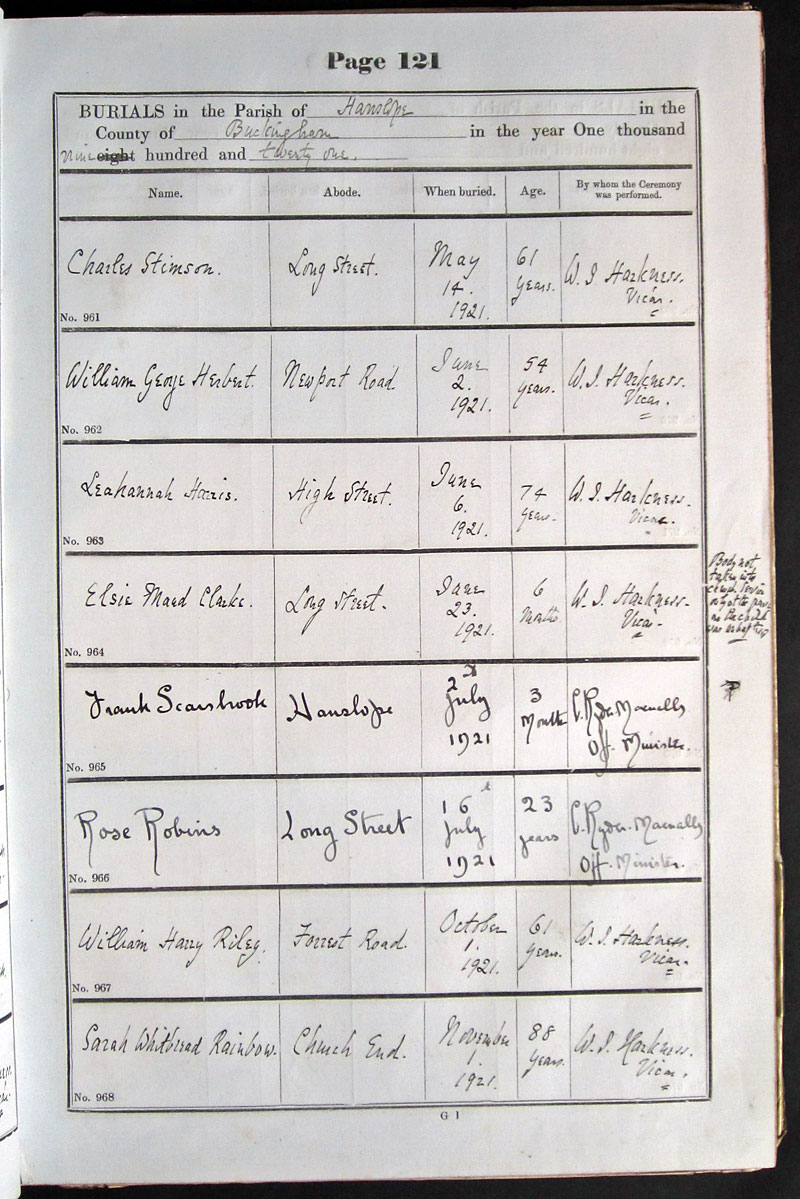 Page 121
BURIALS in the Parish of Hanslope in the
County of Buckingham in the year One thousand
nine eight hundred and twenty one.
Name. Abode. When buried. Age. By whom the Ceremony was performed.
Charles Stimson. Long Street. May 14. 1921. 61 years. W. J. Harkness. Vicar.
No. 961
William George Herbert. Newport Road June 2. 1921. 54 years. W. J. Harkness. Vicar.
No. 962
Leahannah Harris. High Street. June 6. 1921. 74 years. W. J. Harkness. Vicar.
No. 963
Elsie Maud Clarke. Long Street. June 23. 1921. 6 Months W. J. Harkness. Vicar.
No. 964
Body not
taken into
only at the
as the child
was
Frank Scarsbrook Hanslope 2nd July 1921 3 Months C. Ryder. Macnally Off. Minister.
No. 965
Rose Robins Long Street 16th July 1921 23 years C. Ryder. Macnally Off. Minister.
No. 966
William Harry Riley. Forrest Road. October 1. 1921. 61 years. W. J. Harkness. Vicar.
No. 967
Sarah Whitbread Rainbow. Church End. November 1. 1921. 88 years. W. J. Harkness. Vicar.
No. 968
G 1